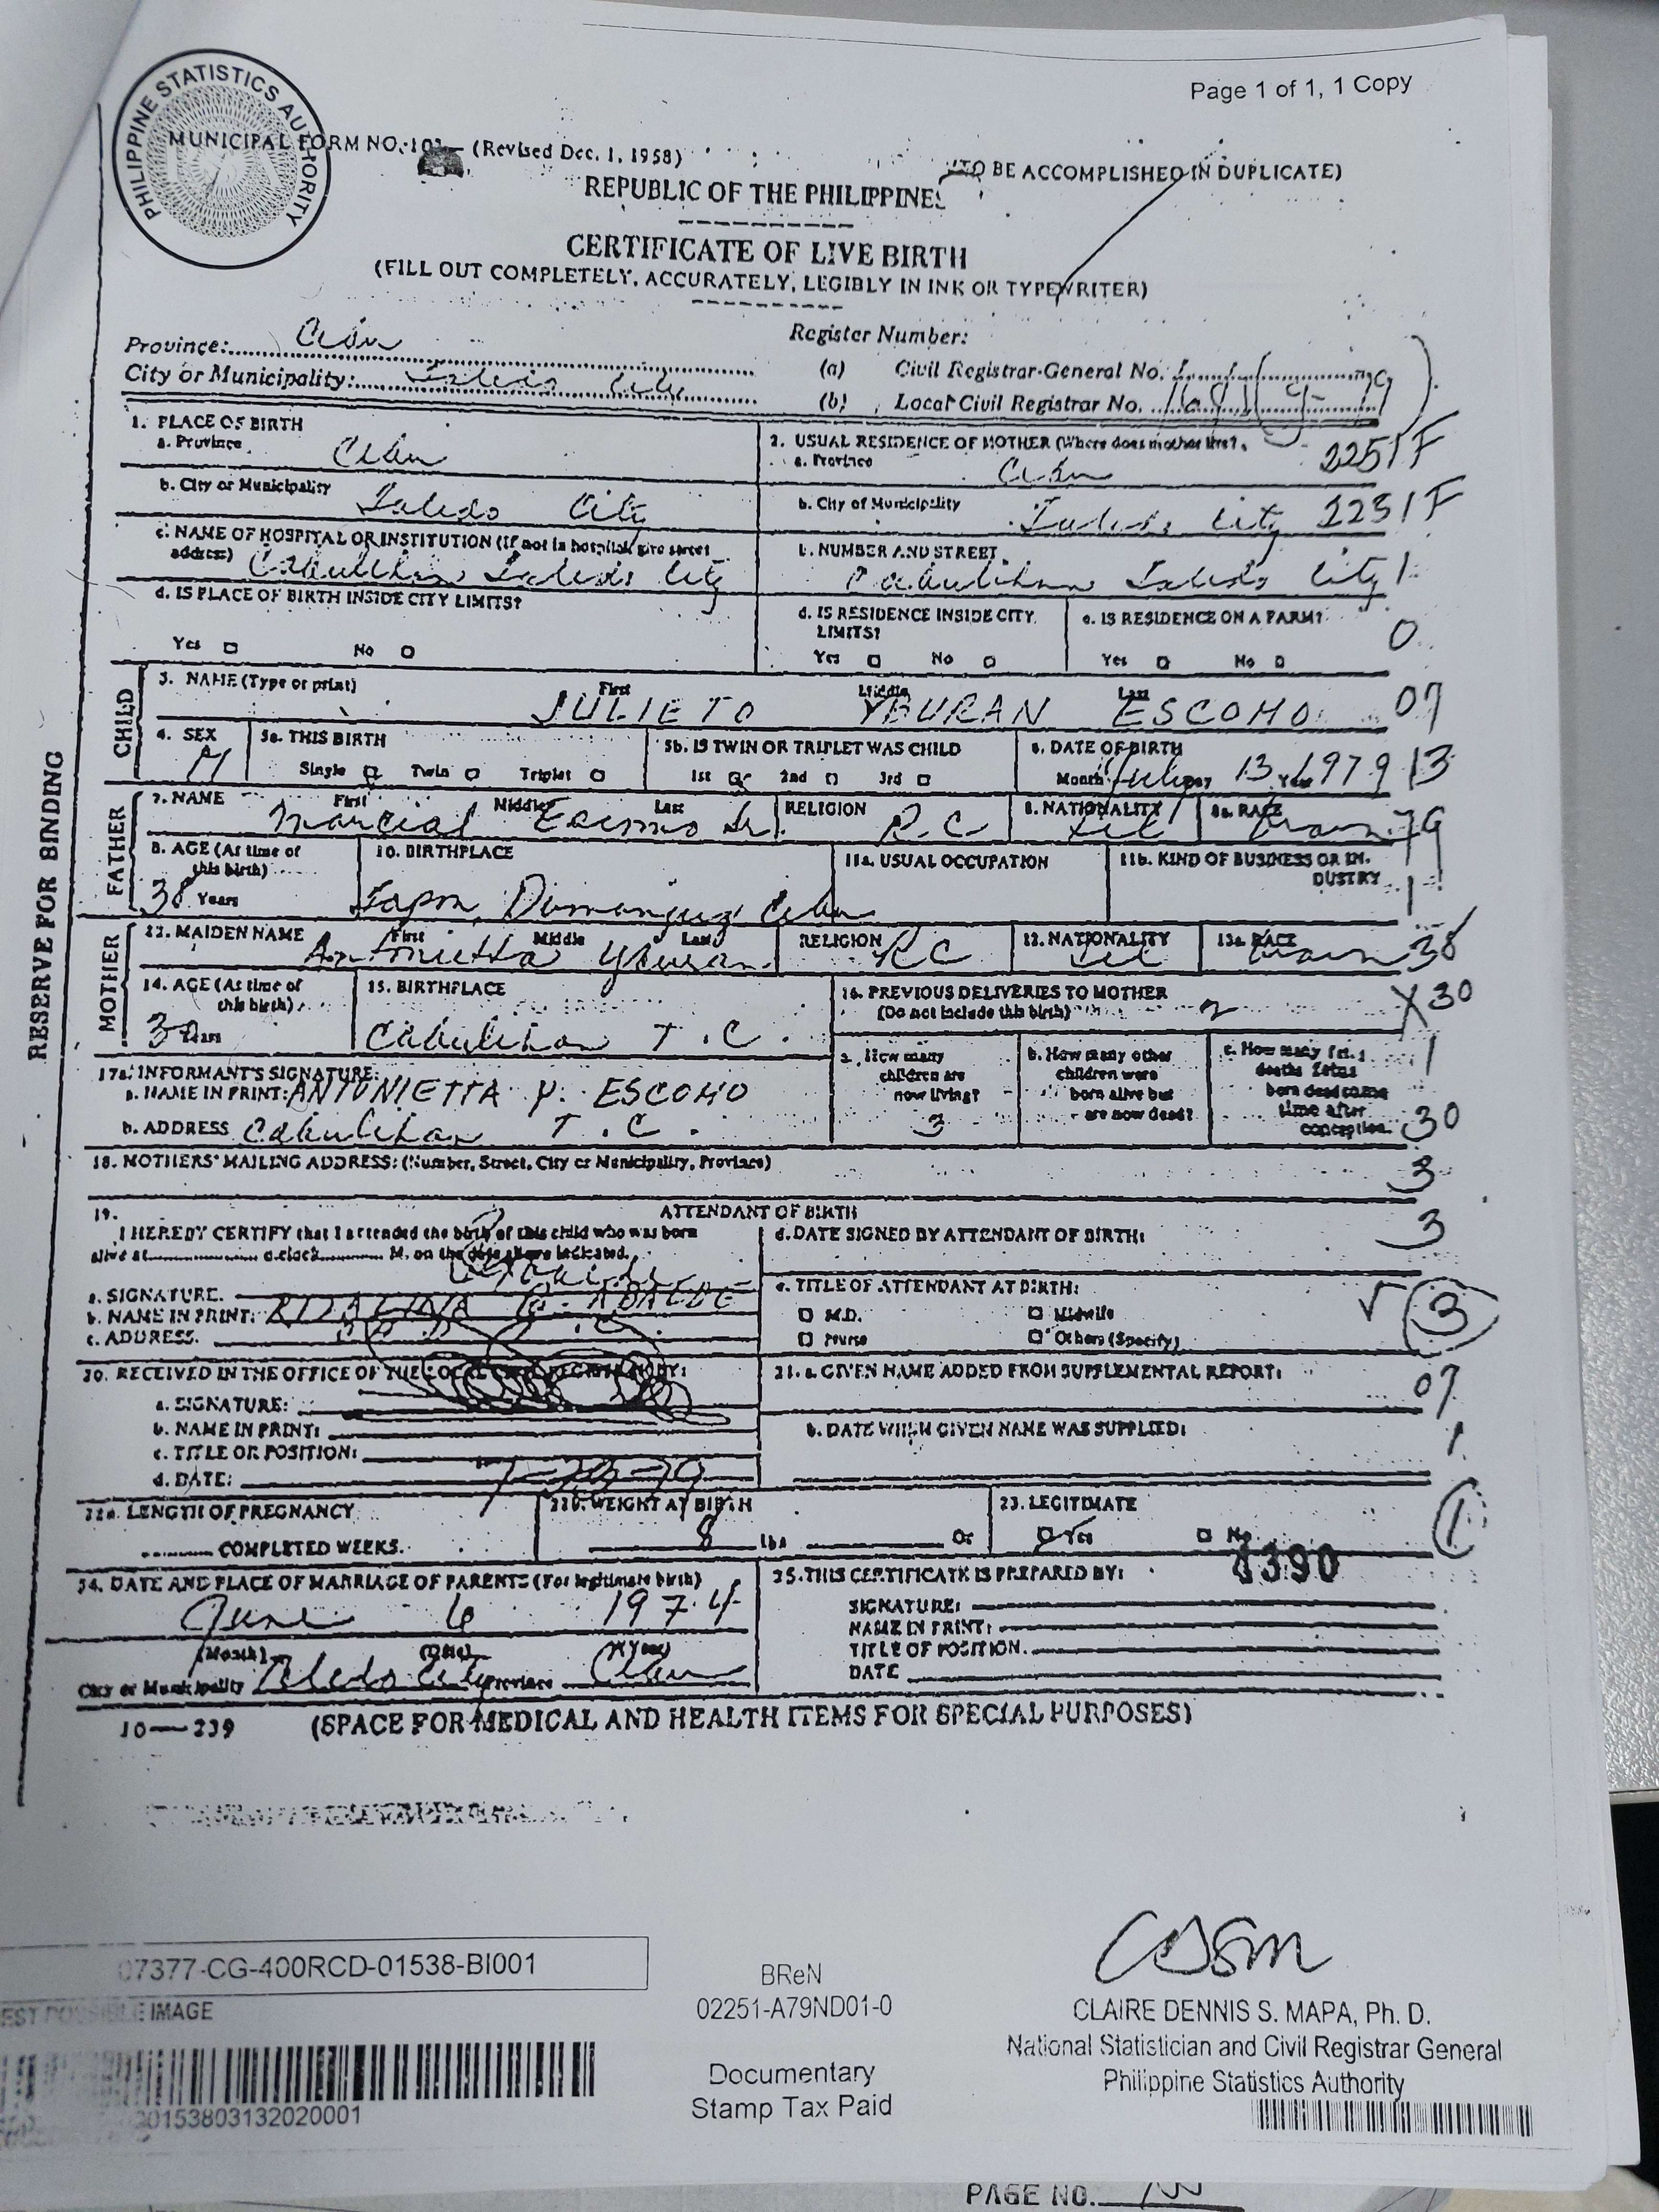 Page 1 of 1, 1 Copy
PHILIPPINE STATISTICS AUTHORITY
MUNICIPAL FORM NO. (Revised Dec. 1, 1958)
(TO BE ACCOMPLISHED IN DUPLICATE)
REPUBLIC OF THE PHILIPPINES
CERTIFICATE OF LIVE BIRTH
(FILL OUT COMPLETELY, ACCURATELY, LEGIBLY IN INK OR TYPEWRITER)
Province: Cebu
Register Number:
City or Municipality: Toledo City
(a) Civil Registrar-General No.
(b) Local Civil Registrar No.
1. PLACE OF BIRTH
a. Province Cebu
2. USUAL RESIDENCE OF MOTHER (Where does mother live?)
a. Province Cebu 2251F
b. City or Municipality Toledo City
b. City of Municipality Toledo City 2251F
c. NAME OF HOSPITAL OR INSTITUTION (If not in hospital, give street address) Cabulihan Toledo City
b. NUMBER AND STREET Cabulihan Toledo City 1
d. IS PLACE OF BIRTH INSIDE CITY LIMITS?
Yes No
d. IS RESIDENCE INSIDE CITY LIMITS?
Yes No
e. IS RESIDENCE ON A FARM?
Yes No
0
RESERVE FOR BINDING
CHILD
3. NAME (Type or print) First Middle Last
JULIETO YBURAN ESCOMO 07
4. SEX M
5a. THIS BIRTH
Single Twin Triplet
5b. IS TWIN OR TRIPLET WAS CHILD
1st 2nd 3rd
6. DATE OF BIRTH
Month July Day 13 Year 1979 13
FATHER
7. NAME First Middle Last
Marcial Escomo Sr.
RELIGION R.C
8. NATIONALITY
8a. RACE brown 79
8. AGE (At time of this birth)
38 Years
10. BIRTHPLACE
11a. USUAL OCCUPATION
11b. KIND OF BUSINESS OR INDUSTRY
MOTHER
12. MAIDEN NAME First Middle Last
Antonietta Yburan
RELIGION RC
13. NATIONALITY
13a. RACE brown 38
14. AGE (At time of this birth)
30 Years
15. BIRTHPLACE
Cabulihan T.C.
16. PREVIOUS DELIVERIES TO MOTHER
(Do not include this birth) 2
X30
a. How many children are now living?
3
b. How many other children were born alive but are now dead?
c. How many
born dead
time after conception
1
30
17a. INFORMANT'S SIGNATURE:
a. NAME IN PRINT: ANTONIETTA Y. ESCOMO
b. ADDRESS Cabulihan T.C.
18. MOTHERS' MAILING ADDRESS: (Number, Street, City or Municipality, Province)
3
19. ATTENDANT OF BIRTH
I HEREBY CERTIFY that I attended the birth of this child who was born
alive at o'clock M. on the date above indicated.
a. SIGNATURE.
b. NAME IN PRINT:
c. ADDRESS.
d. DATE SIGNED BY ATTENDANT OF BIRTH:
3
e. TITLE OF ATTENDANT AT BIRTH:
M.D. Midwife
Nurse Others (Specify)
3
20. RECEIVED IN THE OFFICE OF THE LOCAL CIVIL REGISTRAR BY:
a. SIGNATURE:
b. NAME IN PRINT:
c. TITLE OR POSITION:
d. DATE:
21. a. GIVEN NAME ADDED FROM SUPPLEMENTAL REPORT:
07
b. DATE WHEN GIVEN NAME WAS SUPPLIED:
1
22a. LENGTH OF PREGNANCY
COMPLETED WEEKS.
22b. WEIGHT AT BIRTH
8 Lbs Oz
23. LEGITIMATE
Yes No
1
24. DATE AND PLACE OF MARRIAGE OF PARENTS (For legitimate birth)
June 6 1974
(Month) (Day) (Year)
City or Municipality Toledo City Province Cebu
25. THIS CERTIFICATE IS PREPARED BY:
SIGNATURE:
NAME IN PRINT:
TITLE OF POSITION.
DATE
10—239 (SPACE FOR MEDICAL AND HEALTH ITEMS FOR SPECIAL PURPOSES)
07377-CG-400RCD-01538-BI001
BEST POSSIBLE IMAGE
BReN
02251-A79ND01-0
Documentary
Stamp Tax Paid
CLAIRE DENNIS S. MAPA, Ph. D.
National Statistician and Civil Registrar General
Philippine Statistics Authority
0153803132020001
PAGE NO.